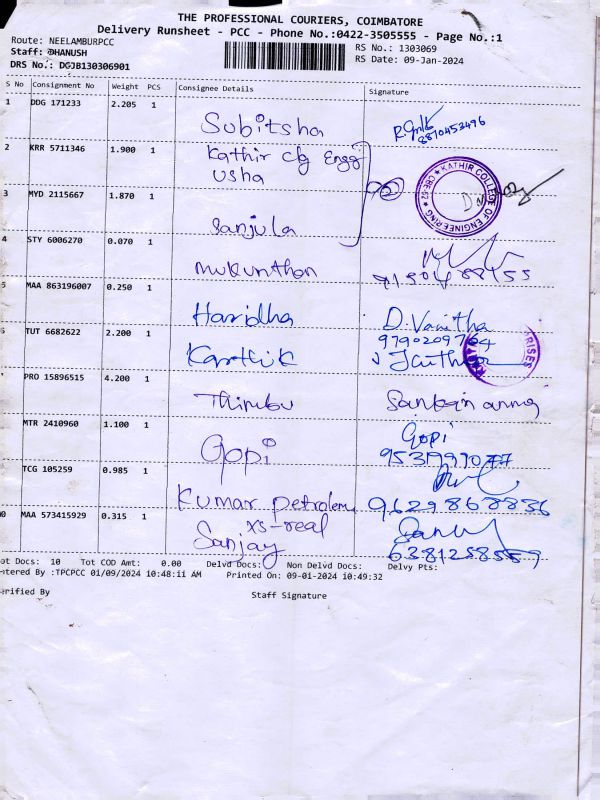 THE PROFESSIONAL COURIERS, COIMBATORE
Delivery Runsheet - PCC - Phone No.:0422-3505555 - Page No.:1
Route: NEELAMBURPCC
RS No.: 1303069
Staff: DHANUSH
RS Date: 09-Jan-2024
DRS No.: DGJB130306901
S No Consignment No Weight PCS Consignee Details Signature
1 DDG 171233 2.205 1
Subitsha
8870453496
2 KRR 5711346 1.900 1
Kathir clg Engg
usha
KATHIR COLLEGE OF ENGINEERING ★ CBE-62 ★
3 MYD 2115667 1.870 1
Sanjula
4 STY 6006270 0.070 1
Mukunthan
5 MAA 863196007 0.250 1
Haridha D. Vanitha
6 TUT 6682622 2.200 1
9790209764
Karthik
PRO 15896515 4.200 1
Thimbu
MTR 2410960 1.100 1
Gopi Gopi
TCG 105259 0.985 1
Kumar petroleum 9629868836
xs-real
0 MAA 573415929 0.315 1
Sanjay
ot Docs: 10 Tot COD Amt: 0.00 Delvd Docs: Non Delvd Docs: Delvy Pts:
ntered By :TPCPCC 01/09/2024 10:48:11 AM Printed On: 09-01-2024 10:49:32
erified By Staff Signature